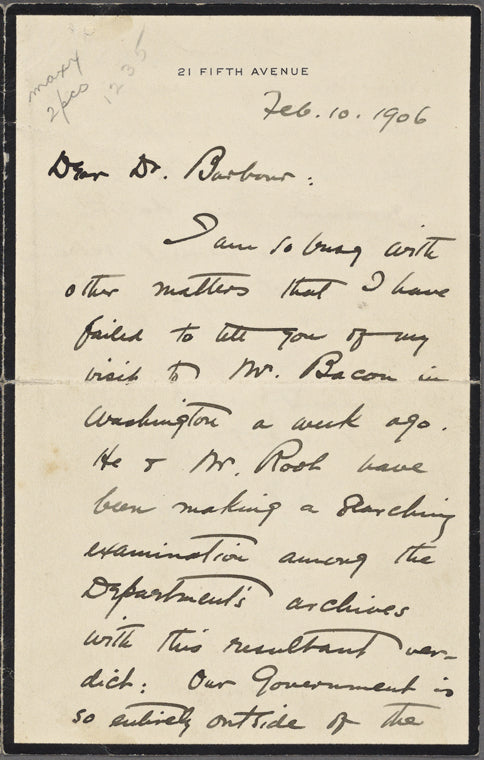 maxx
2pco
1235
21 FIFTH AVENUE
Feb. 10. 1906
Dear Dr. Barbour:
I am so busy with
other matters that I have
failed to tell you of my
visit to Mr. Bacon in
Washington a week ago.
He & Mr. Root have
been making a searching
examination among the
Department's archives
with this resultant ver-
dict: Our Government is
so entirely outside of the